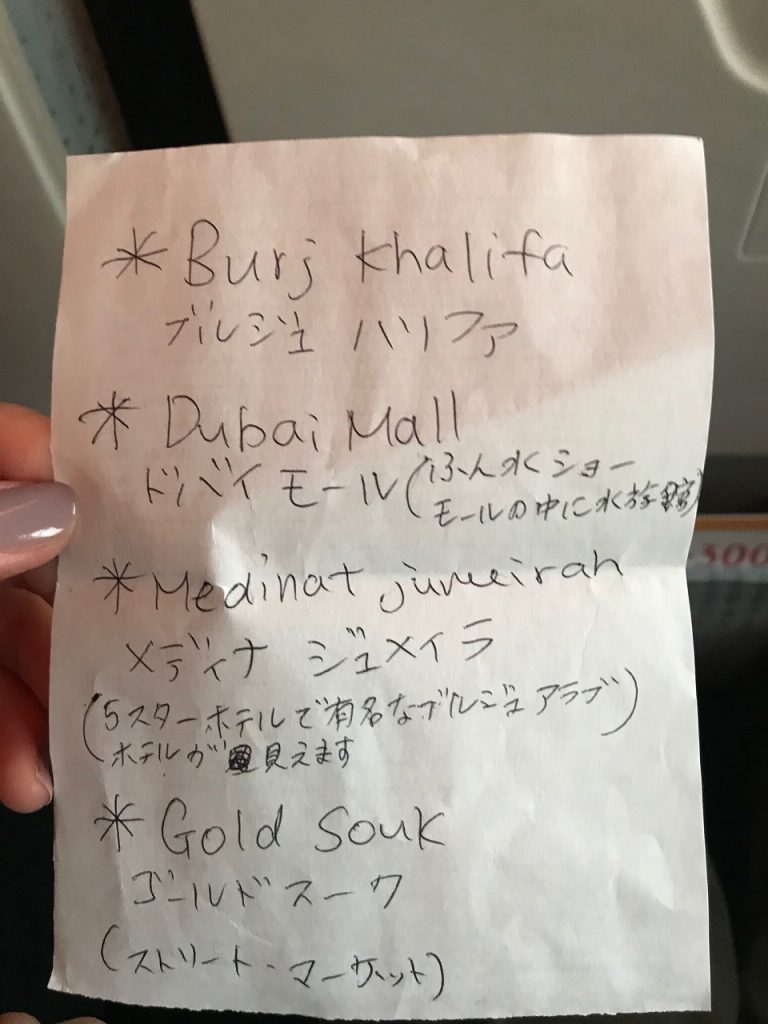 *Burj Khalifa
ブルジュ ハリファ
*Dubai Mall
ドバイ モール(ふん水ショー
モールの中に水族館)
*Medinat jumeirah
メディナ ジュメイラ
(5スターホテルで有名なブルジュ アラブ)
ホテルが見えます
*Gold Souk
ゴールドスーク
(ストリート・マーケット)
500